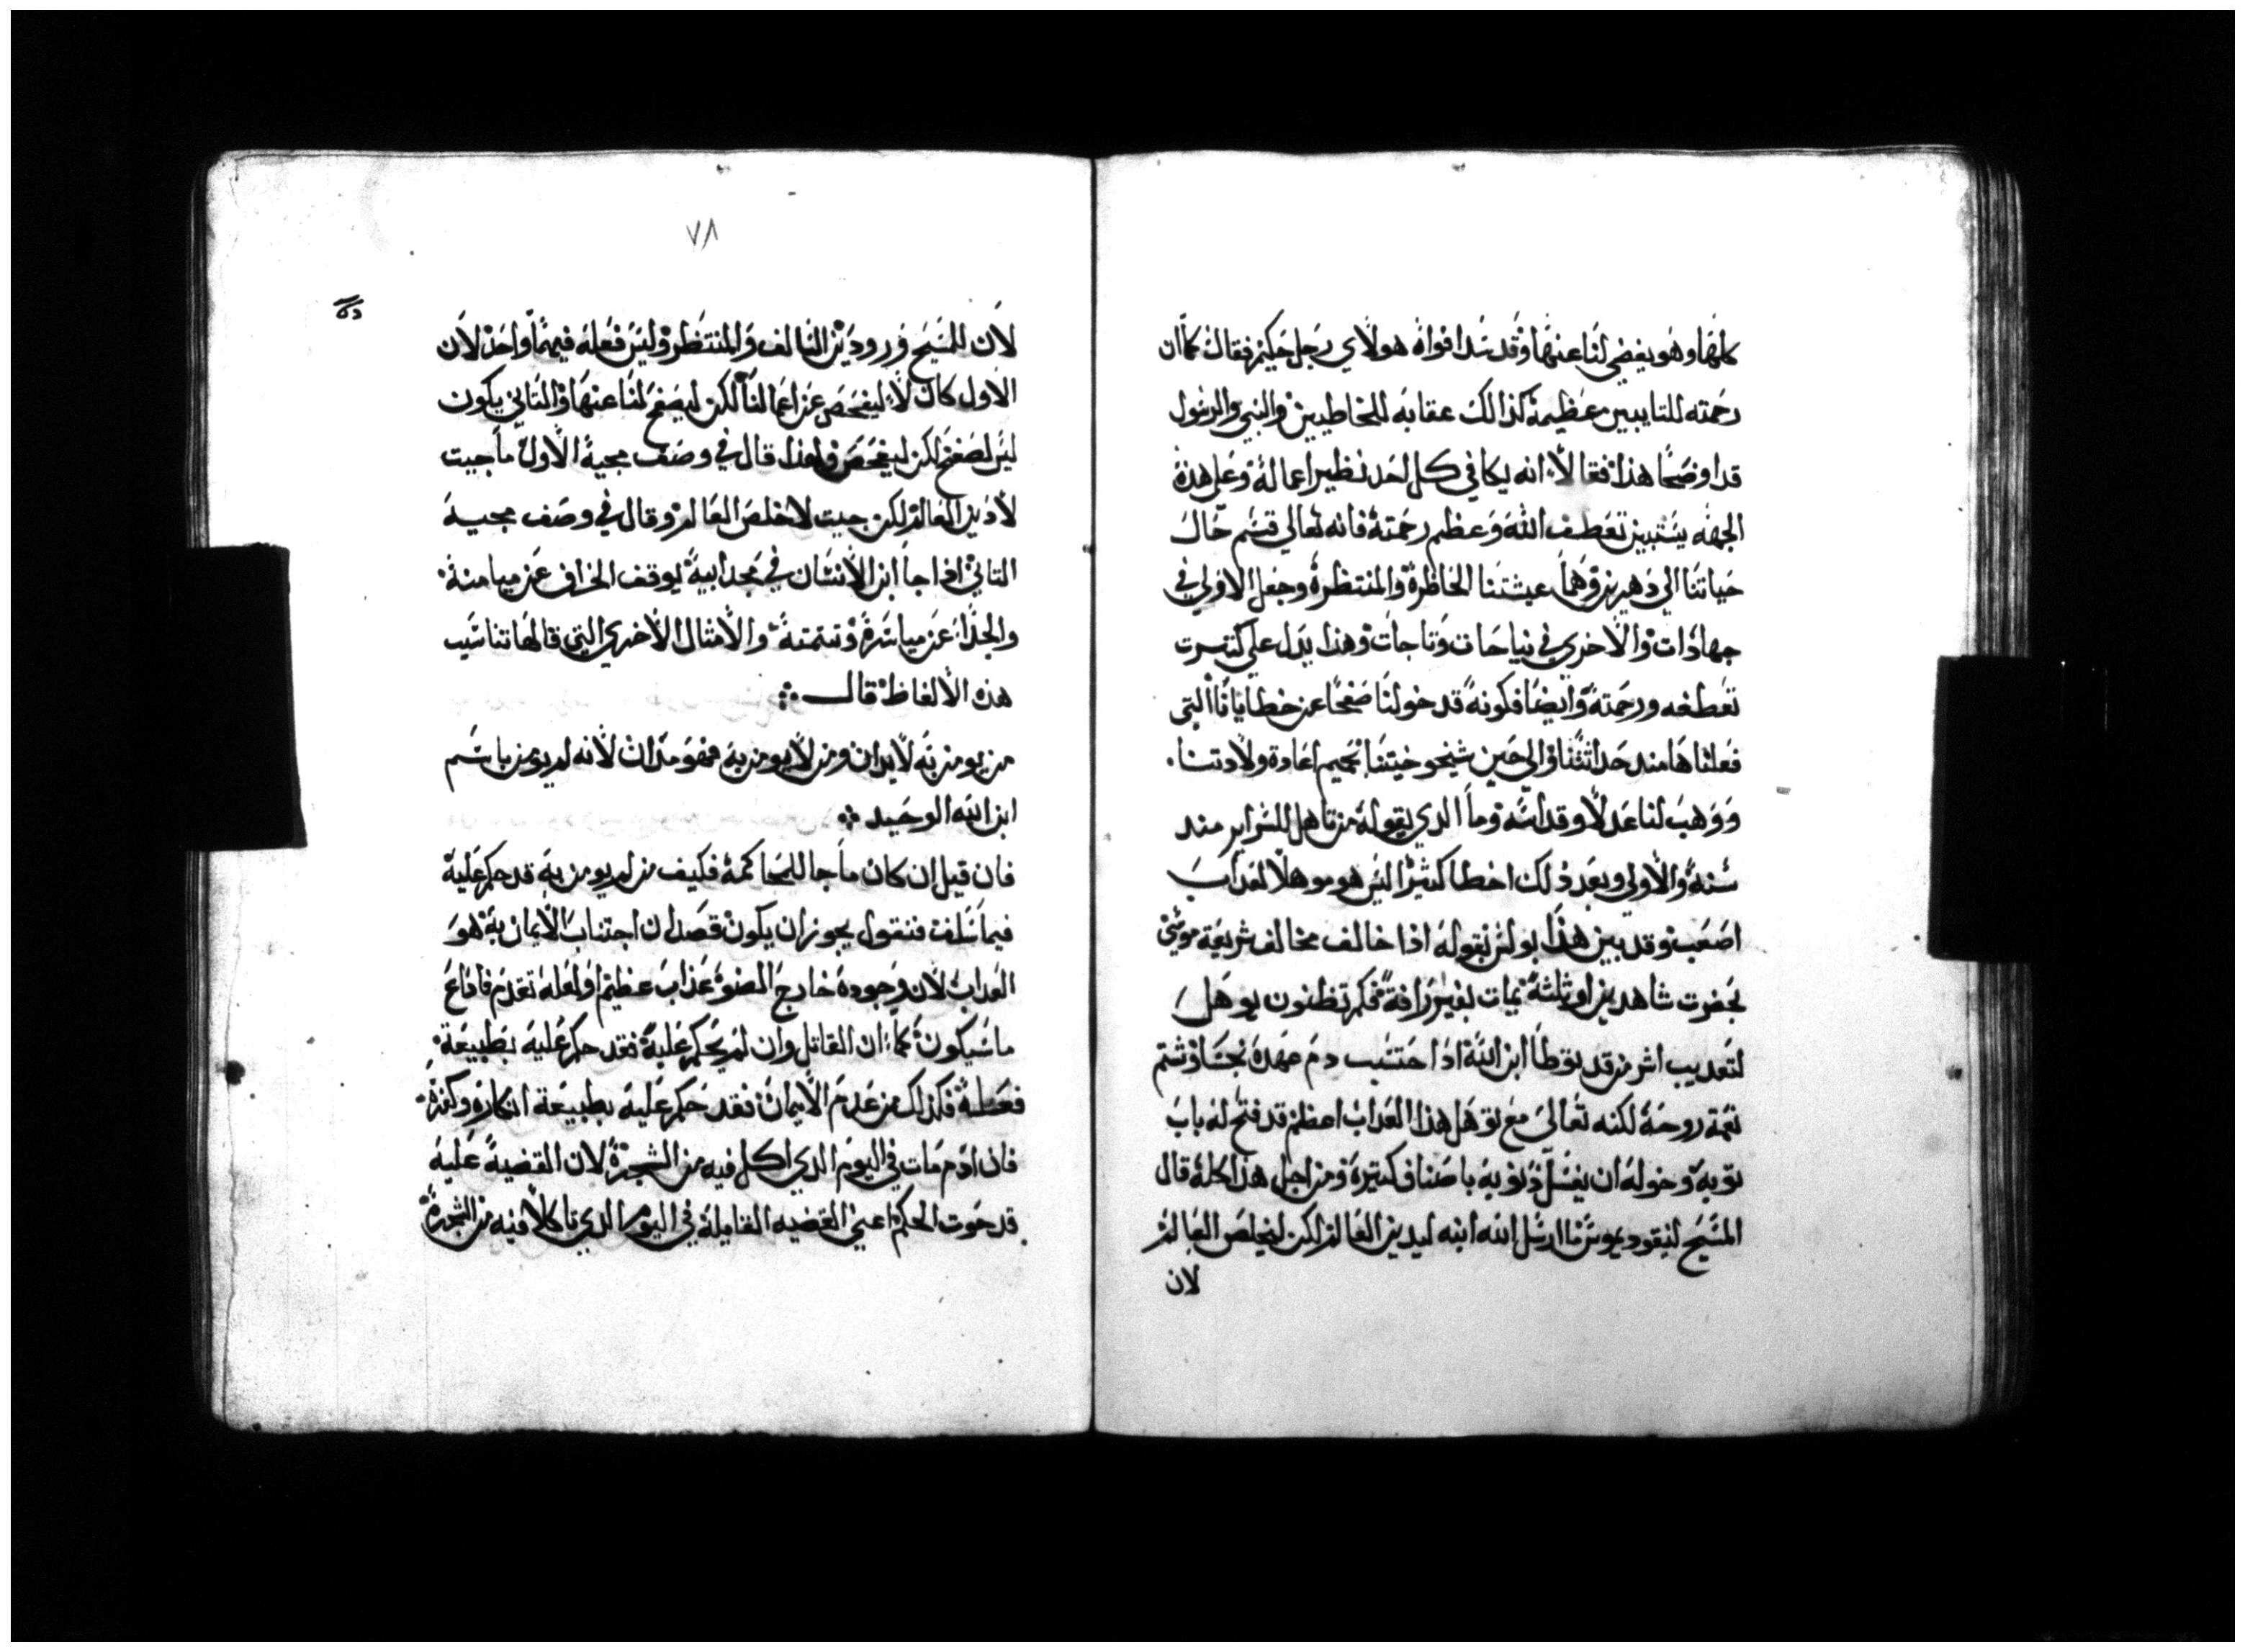 كلها وهو يغضي لنا عنها وقد سد افواه هولاي رجل حكيم فقال كما ان
رحمته للتايبين عظيمة كذالك عقابه للخاطيين والنبي والرسول
قد اوضحا هذا فقالا انه يكافي كل احد نظير اعماله وعلي هذه
الجهه يستبين تعطف الله وعظم رحمته فانه تعالي قسم حال
حياتنا الي دهرين وهما عيشتنا الحاظرة والمنتظرة وجعل الاولي في
جهادات والاخري في نياحات وتاجات وهذا يدل علي كترت
تعطفه ورحمته وايضا فكونه قد خولنا صفحا عن خطايانا التي
فعلناها مند حداثتنا والي حين شيخوختنا بحميم اعادة ولادتنا
ووهب لنا عدلا وقداسه وما الدي يقوله من تاهل للسراير مند
سنه والاولي وبعد ذلك اخطا كثيرا اليس هو موهلا لعداب
اصعب وقد بين هذا بولس بقوله اذا خالف مخالف شريعة موسي
بحضرت شاهدين او ثلثة يمات بغير رافة فكم تظنون يوهل
لتعديب اشر من قد توطا ابن الله اذا حتسب دم عهده نجسا وشتم
نعمة روحه لكنه تعالي مع توهل هذا العداب اعظم قد فتح له باب
توبة وخوله ان يغسل ذنوبه باصناف كتيرة ومن اجل هذا كله قال
المسيح لنيقوديموس ما ارسل الله ابنه ليدين العالم لكن ليخلص العالم
لان
٧٨
لان للمسيح ورودين السالف والمنتظر وليس فعله فيهما واحد لان
الاول كان لا ليفحص عن اعمالنا لكن ليصفح لنا عنها والتاني يكون
ليس لصفح لكن ليفحص ولهذا قال في وصف مجية الاول ما جيت
لادين العالم لكن جيت لاخلص العالم وقال في وصف مجيه
التاني اذا جا ابن الانسان في مجد ابية يوقف الخراف عن ميامنه
والجدا عن مياسره وتتمته والامثال الاخري التي قالها تناسب
هذه الالفاظ قال
من يومن به لا يدان ومن لا يومن به فهو مدان لانه لم يومن باسم
ابن الله الوحيد
فان قيل ان كان ما جا للمحاكمة فكيف من لم يومن به قد حكم عليه
فيما سلف فنقول يجوز ان يكون قصد ان اجتناب الايمان به هو
العداب لان وجوده خارج الضوء عذاب عظيم ولعله تقدم فاذاع
ما سيكون كما ان القاتل وان لم يحكم عليه فقد حكم عليه بطبيعة
فعله فكذلك من عدم الايمان فقد حكم عليه بطبيعة انكاره وكفره
فان ادم مات في اليوم الدي اكل فيه من الشجرة لان القضية عليه
قد حوت الحكم اعني القضيه القايلة في اليوم الدي تاكلا فيه من الشجرة